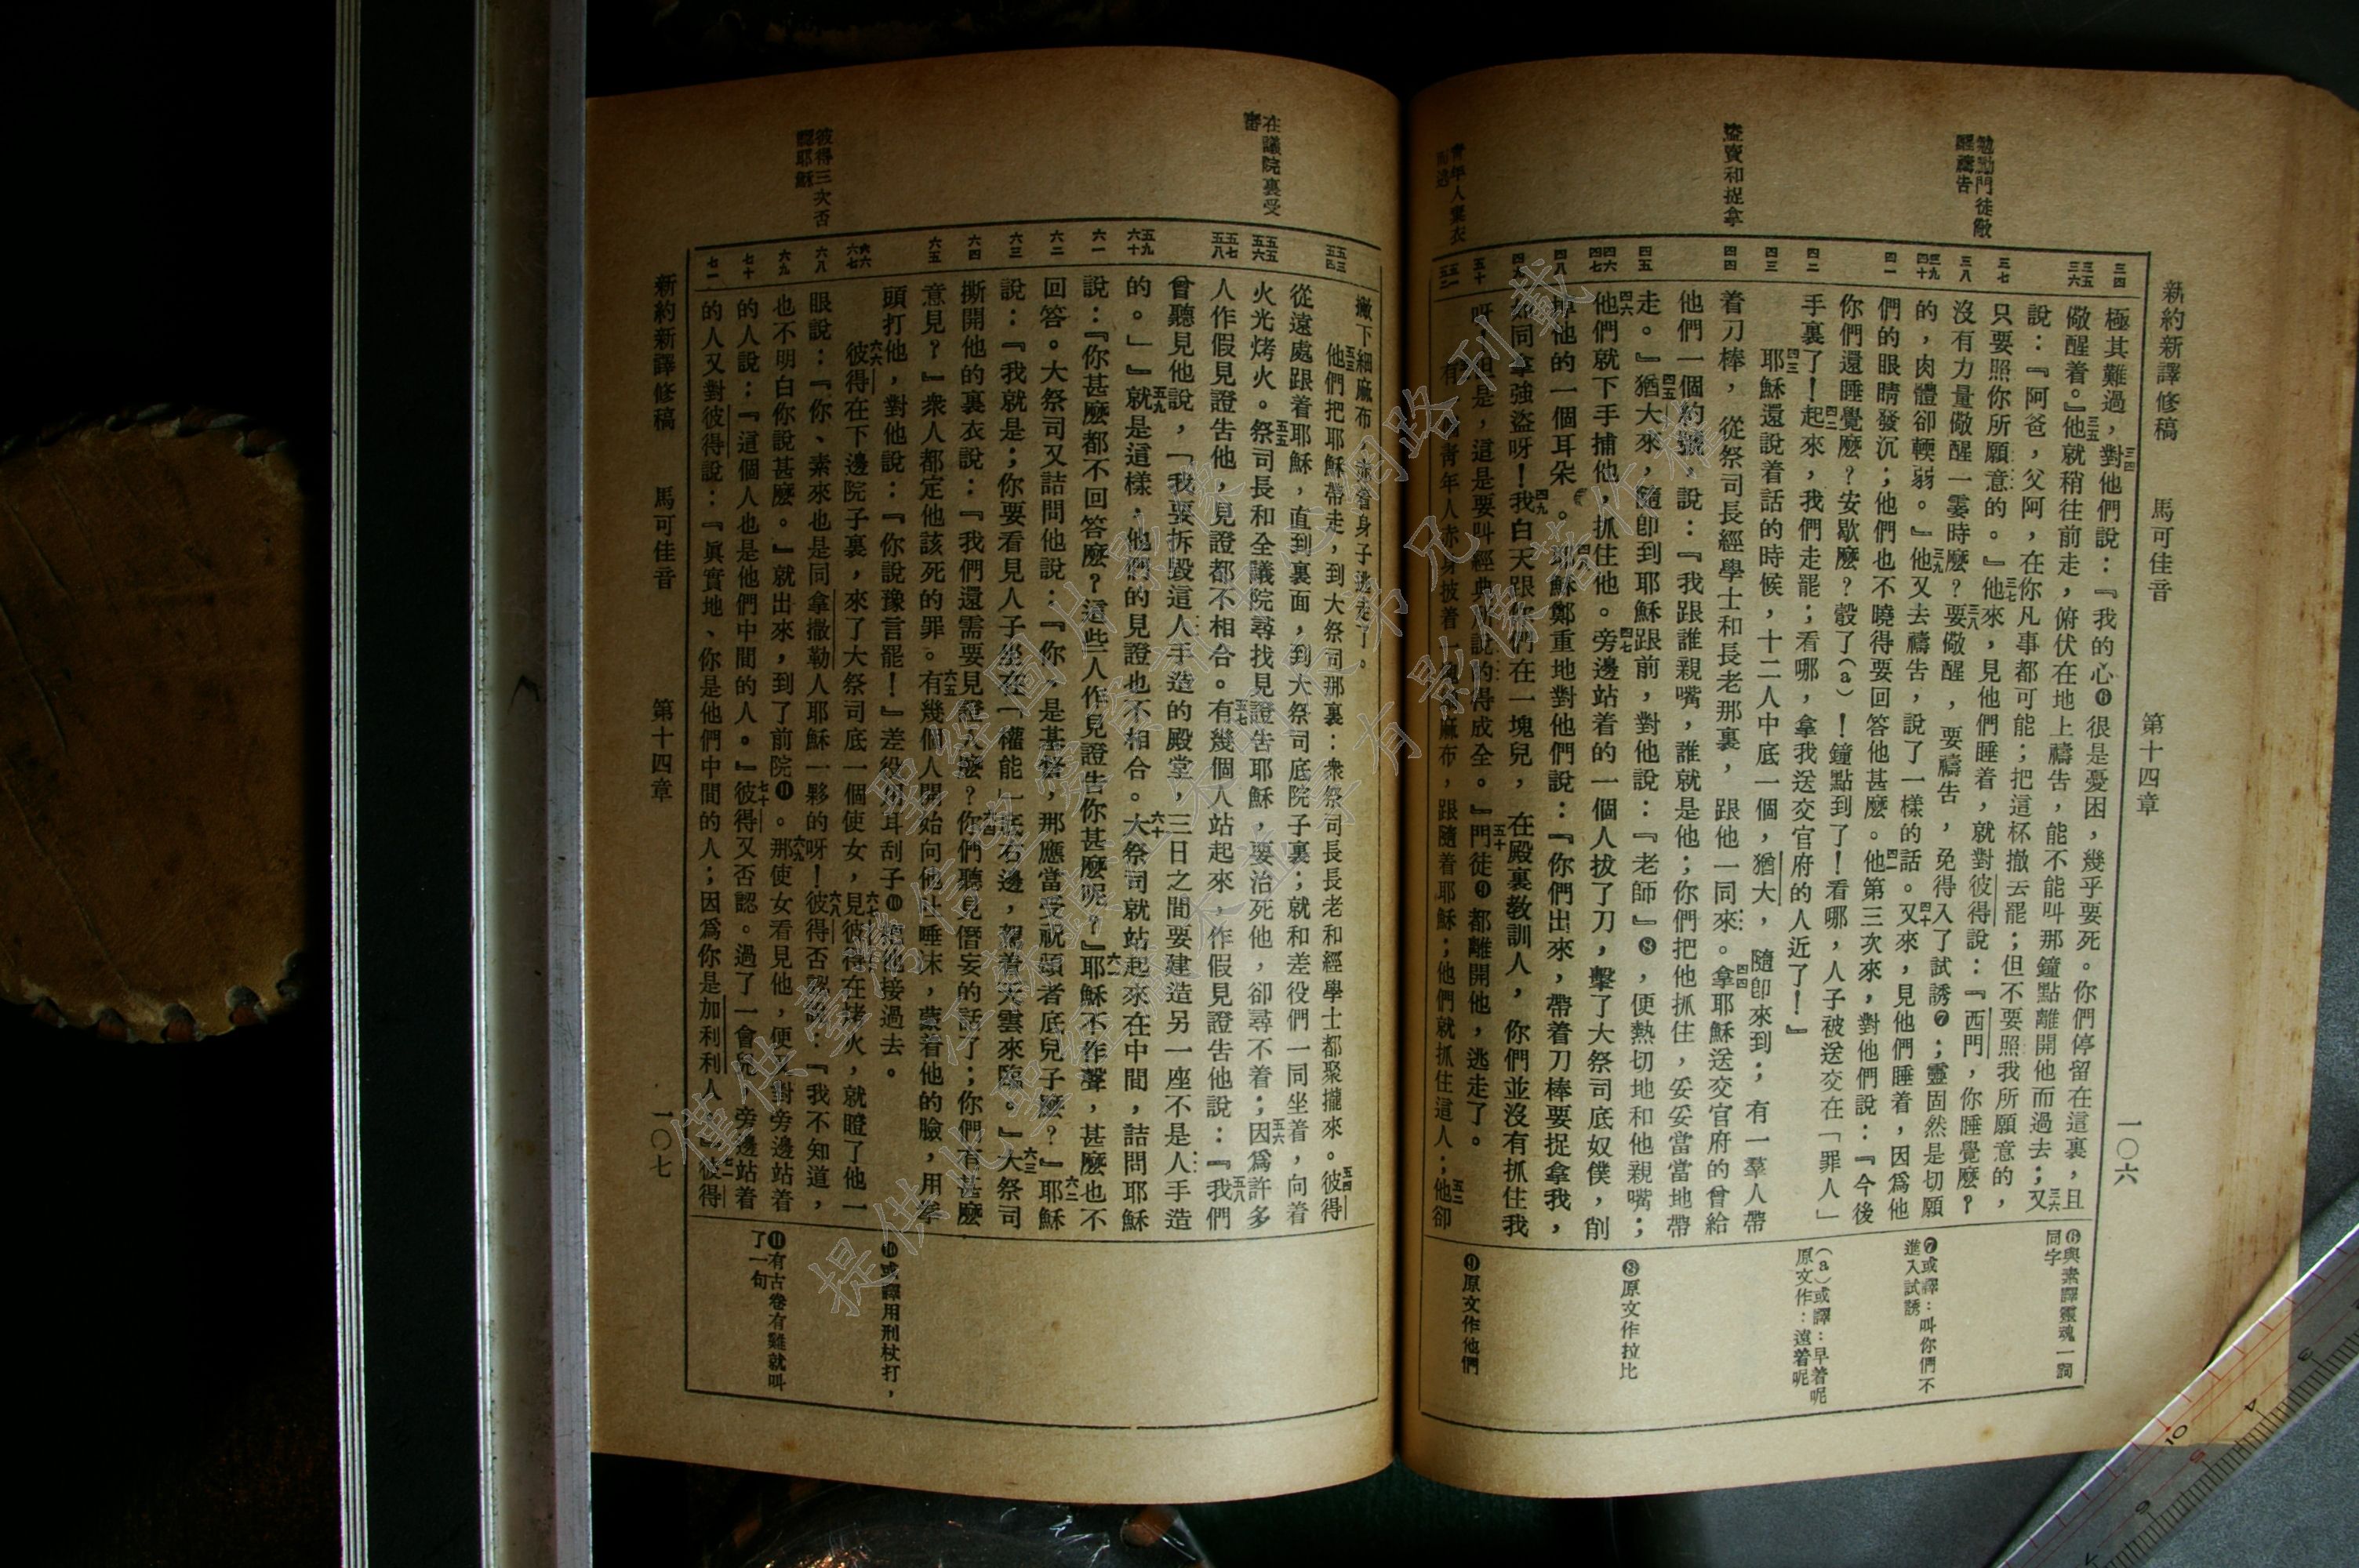 新約新譯修稿 馬可佳音 第十四章 一〇六
勉勵門徒儆
醒禱告
盜賣和捉拿
青年人棄衣
三四
三五
三六
三七
三八
三九
四十
四一
四二
四三
四四
四五
四六
四七
四八
四九
五十
五一
五二
極其難過，三四對他們說：『我的心❻很是憂困，幾乎要死。你們停留在這裏，且
儆醒着。』三五他就稍往前走，俯伏在地上禱告，能不能叫那鐘點離開他而過去；三六又
說：『阿爸，父阿，在你凡事都可能；把這杯撤去罷；但不要照我所願意的，
只要照你所願意的。』三七他來，見他們睡着，就對彼得說：『西門，你睡覺麼？
沒有力量儆醒一霎時麼？三八要儆醒，要禱告，免得入了試誘❼；靈固然是切願
的，肉體卻輭弱。』三九他又去禱告，說了一樣的話。四十又來，見他們睡着，因爲他
們的眼睛發沉；他們也不曉得要回答他甚麼。四一他第三次來，對他們說：『今後
你們還睡覺麼？安歇麼？彀了(a)！鐘點到了！看哪，人子被送交在「罪人」
手裏了！四二起來，我們走罷；看哪，拿我送交官府的人近了！』
四三耶穌還說着話的時候，十二人中底一個，猶大，隨卽來到；有一羣人帶
着刀棒，從祭司長經學士和長老那裏，跟他一同來。四四拿耶穌送交官府的曾給
他們一個約號，說：『我跟誰親嘴，誰就是他；你們把他抓住，妥妥當當地帶
走。』四五猶大來，隨卽到耶穌跟前，對他說：『老師』❽，便熱切地和他親嘴；
四六他們就下手捕他，抓住他。四七旁邊站着的一個人拔了刀，擊了大祭司底奴僕，削
掉他的一個耳朵。四八耶穌鄭重地對他們說：『你們出來，帶着刀棒要捉拿我，
如同拿強盜呀！四九我白天跟你們在一塊兒，在殿裏教訓人，你們並沒有抓住我
呀！但是，這是要叫經典所說的得成全。』五十門徒❾都離開他，逃走了。
有一個青年人赤身披着一塊細麻布，跟隨着耶穌；他們就抓住這人；五二他卻
❻與素譯靈魂一詞
同字
❼或譯：叫你們不
進入試誘
(a)或譯：早着呢
原文作：遠着呢
❽原文作拉比
❾原文作他們
在議院裏受
審
彼得三次否
認耶穌
五三
五四
五五
五六
五七
五八
五九
六十
六一
六二
六三
六四
六五
六六
六七
六八
六九
七十
七一
撇下細麻布，赤着身子逃走了。
五三他們把耶穌帶走，到大祭司那裏；衆祭司長長老和經學士都聚攏來。五四彼得
從遠處跟着耶穌，直到裏面，到大祭司底院子裏；就和差役們一同坐着，向着
火光烤火。五五祭司長和全議院尋找見證告耶穌，要治死他，卻尋不着；五六因爲許多
人作假見證告他，見證都不相合。五七有幾個人站起來，作假見證告他說：五八『我們
曾聽見他說，「我要拆毀這人手造的殿堂，三日之間要建造另一座不是人手造
的。」』五九就是這樣，他們的見證也不相合。六十大祭司就站起來在中間，詰問耶穌
說：『你甚麼都不回答麼？這些人作見證告你甚麼呢？』六一耶穌不作聲，甚麼也不
回答。大祭司又詰問他說：『你，是基督，那應當受祝頌者底兒子麼？』六二耶穌
說：『我就是；你要看見人子坐在「權能」底右邊，駕着天雲來臨。』六三大祭司
撕開他的裏衣說：『我們還需要見證人麼？六四你們聽見僭妄的話了；你們有甚麼
意見？』衆人都定他該死的罪。六五有幾個人開始向他吐唾沫，蒙着他的臉，用拳
頭打他，對他說：『你說豫言罷！』差役用耳刮子❿把他接過去。
六六彼得在下邊院子裏，來了大祭司底一個使女，六七見彼得在烤火，就瞪了他一
眼說：『你、素來也是同拿撒勒人耶穌一夥的呀！六八彼得否認說：『我不知道，
也不明白你說甚麼。』就出來，到了前院⓫。六九那使女看見他，便又對旁邊站着
的人說：『這個人也是他們中間的人。』七十彼得又否認。過了一會兒，旁邊站着
的人又對彼得說：『眞實地、你是他們中間的人；因爲你是加利利人。』七一彼得
❿或譯用刑杖打，
⓫有古卷有雞就叫
了一句
新約新譯修稿 馬可佳音 第十四章 一〇七